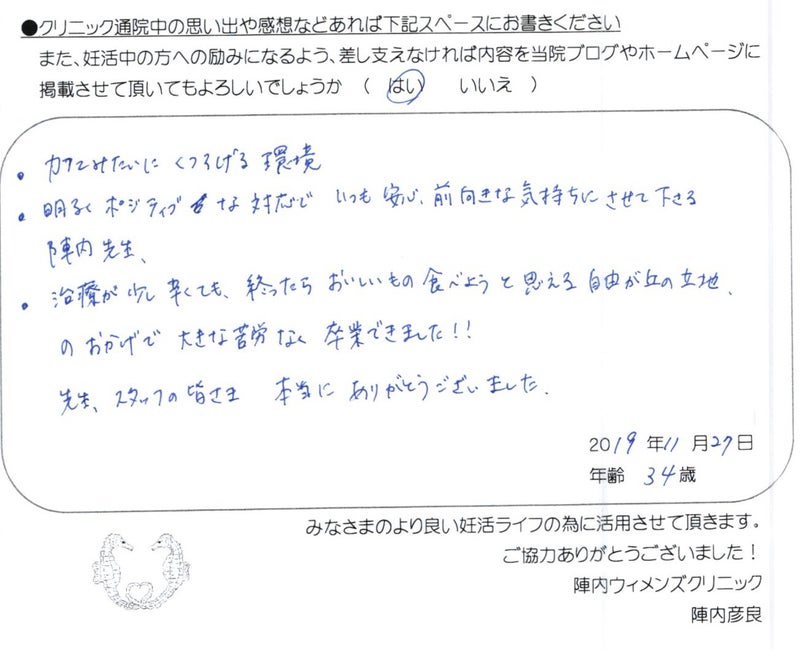 ●クリニック通院中の思い出や感想などあれば下記スペースにお書きください
また、妊活中の方への励みになるよう、差し支えなければ内容を当院ブログやホームページに
掲載させて頂いてもよろしいでしょうか ( はい いいえ )
・カフェみたいに くつろげる 環境
・明るく ポジティブ な 対応で いつも 安心、前向きな気持ちに させて下さる
陣内先生、
・治療が少し辛くても、終ったら おいしいもの 食べようと思える 自由が丘の立地、
の おかげで 大きな苦労なく 卒業できました!!
先生、スタッフの皆さま 本当に ありがとうございました.
2019年11月27日
年齢 34歳
みなさまのより良い妊活ライフの為に活用させて頂きます。
ご協力ありがとうございました!
陣内ウィメンズクリニック
陣内彦良